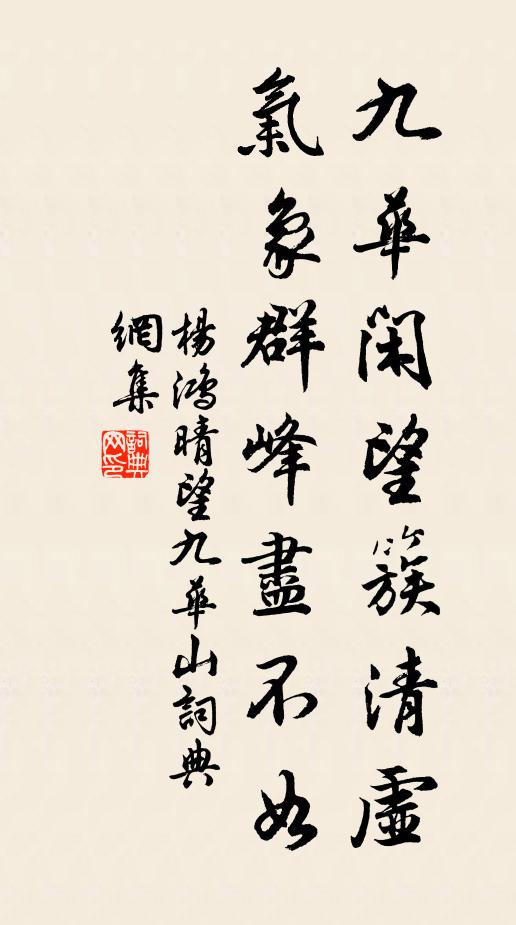 九華閑望簇清虛
氣象群峰盡不如
楊鴻晴望九華山詞典
網集
詞典網印